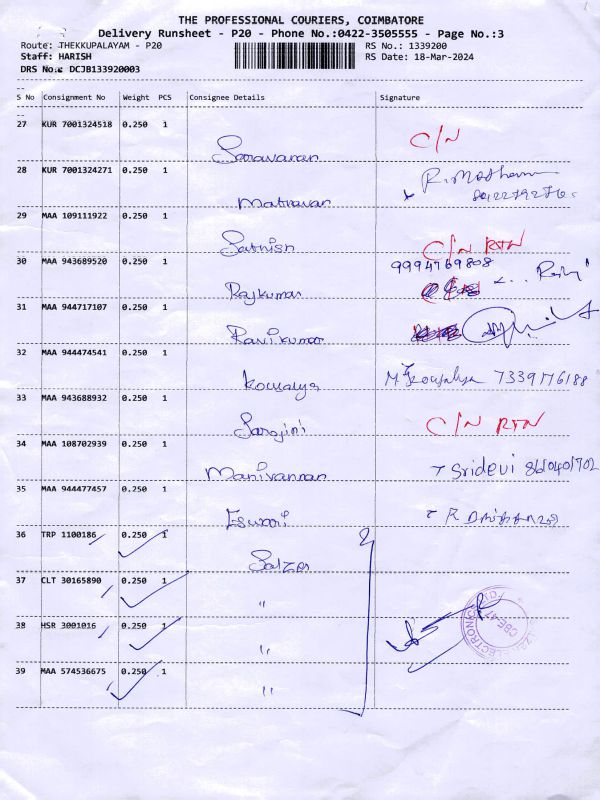 THE PROFESSIONAL COURIERS, COIMBATORE
Delivery Runsheet - P20 - Phone No.:0422-3505555 - Page No.:3
Route: THEKKUPALAYAM - P20 RS No.: 1339200
Staff: HARISH RS Date: 18-Mar-2024
DRS No.: DCJB133920003
S No Consignment No Weight PCS Consignee Details Signature
27 KUR 7001324518 0.250 1
Saravanan C/N
28 KUR 7001324271 0.250 1
Mathavan
29 MAA 109111922 0.250 1
Sathish C/N RTN
30 MAA 943689520 0.250 1 9994769808
Rajkumar
31 MAA 944717107 0.250 1
Ravikumar
32 MAA 944474541 0.250 1
Kowsalya 7339176188
33 MAA 943688932 0.250 1
Sarojini C/N RTN
34 MAA 108702939 0.250 1
Manivannan Sridevi
35 MAA 944477457 0.250 1
Eswari
36 TRP 1100186 0.250 1
Salzer
37 CLT 30165890 0.250 1
"
38 HSR 3001016 0.250 1
"
39 MAA 574536675 0.250 1
"